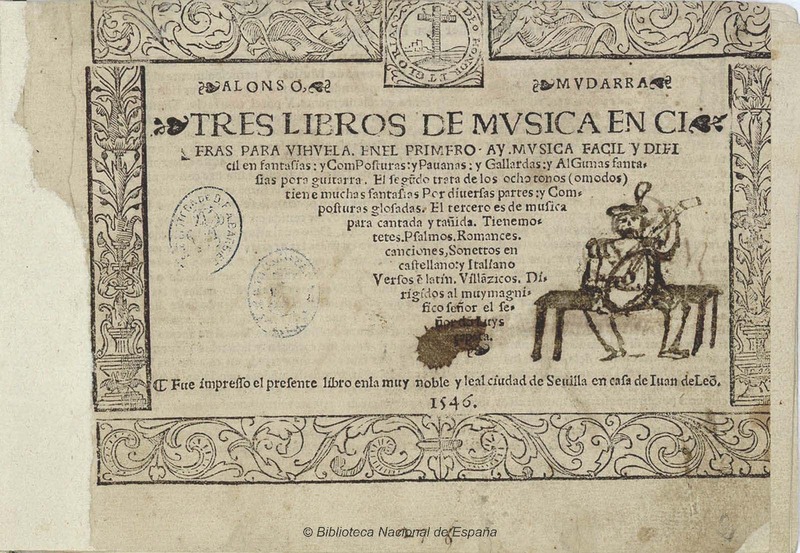 DEO HONOR ET GLORIA
ALONSO, MVDARRA
TRES LIBROS DE MVSICA EN CI
FRAS PARA VIHVELA. ENEL PRIMERO. AY. MVSICA FACIL Y DIFI
cil en fantasias: y ComPosturas: y Pauanas: y Gallardas: y AlGunas fanta-
sias pora guitarra. El segũdo trata de los ocho tonos (o modos)
tiene muchas fantasias Por diuersas partes: y Com-
posturas glosadas. El tercero es de musica
para cantada y tañida. Tiene mo-
tetes. Psalmos. Romances.
canciones, Sonettos en
castellano: y Italiano
Versos ẽ latin. Villãzicos. Di-
rigidos al muy magni-
fico señor el se-
ñor don Luys
¶ Fue impresso el presente libro enla muy noble y leal ciudad de Seuilla en casa de Iuan de Leõ.
1546.
© Biblioteca Nacional de España